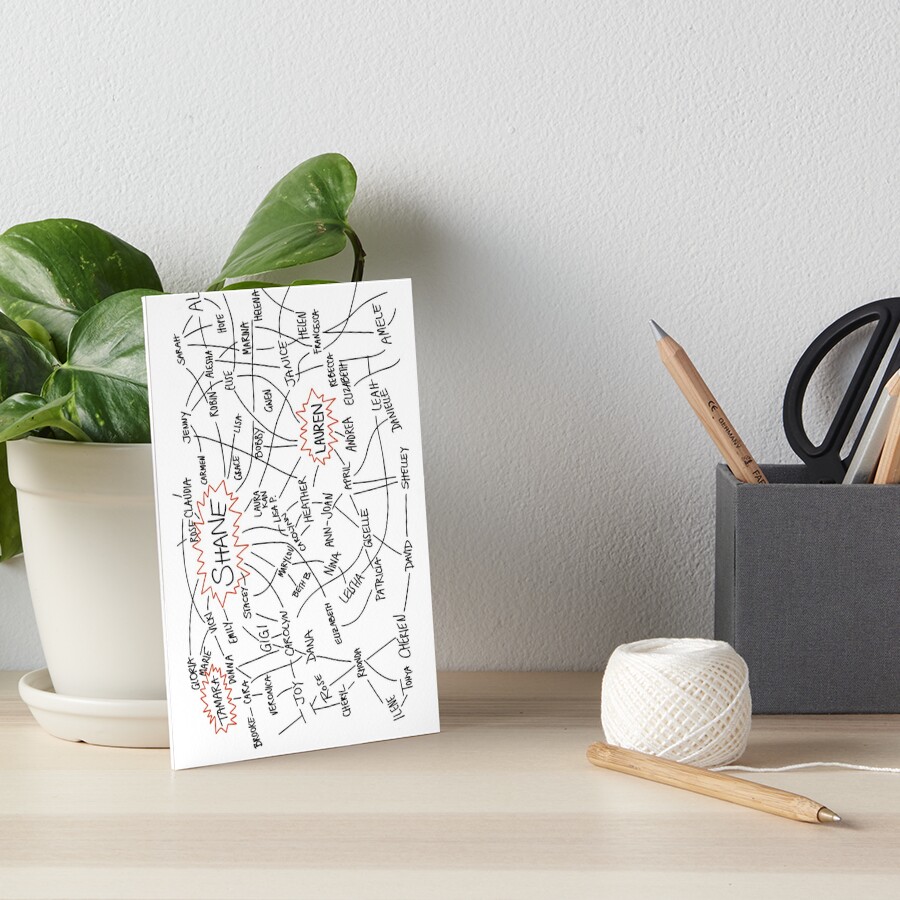 AL
HOPE
HELENA
SARAH
ALESHA
MARINA
HELEN
FRANCESCA
AMELE
ROBIN
ELISE
JANICE
REBECCA
ELIZABETH
JENNY
LISA
GWEN
LAUREN
LEAH
DANIELLE
CARMEN
GRACE
BOBBY
ANDREA
CLAUDIA
ROSE
SHANE
LAURA
KAN
LISA P.
HEATHER
APRIL
SHELLEY
CAROLYN
ANN-JOAN
GISELLE
MARYLOU
BETH B.
NINA
LEISHA
PATRICIA
DAVID
STACEY
VICKI
EMILY
GIGI
CAROLYN
DANA
ELIZABETH
CHERIEN
GLORIA
MARIE
TAMARA
DONNA
CARA
VERONICA
JOY
ROSE
RHONDA
CHERYL
TONYA
ILENE
BROOKE
CE
GERMANY
FA